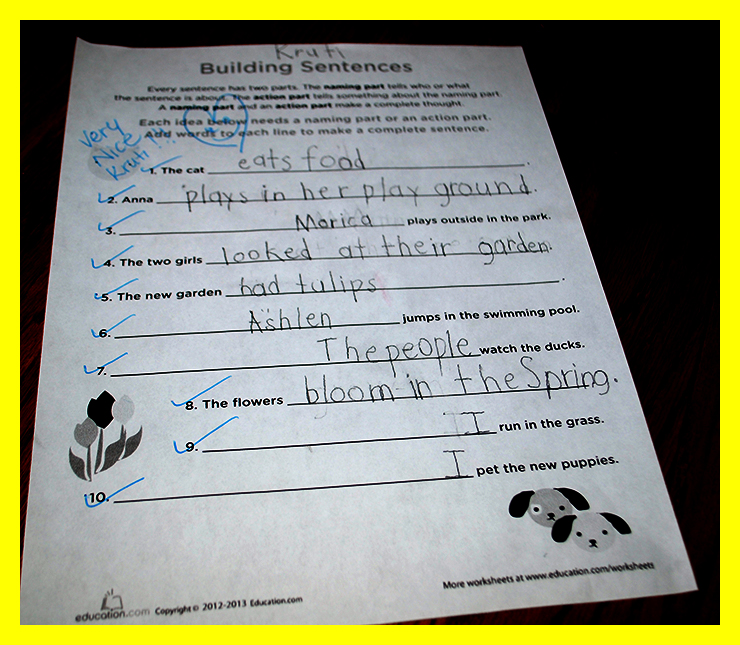 Kruti
Building Sentences
Every sentence has two parts. The naming part tells who or what
the sentence is about. The action part tells something about the naming part.
A naming part and an action part make a complete thought.
Each idea below needs a naming part or an action part.
Add words to each line to make a complete sentence.
Very
Nice
Kruti !!!
1. The cat eats food.
2. Anna plays in her play ground.
3. Marica plays outside in the park.
4. The two girls looked at their garden.
5. The new garden had tulips.
6. Ashlen jumps in the swimming pool.
7. The people watch the ducks.
8. The flowers bloom in the Spring.
9. I run in the grass.
10. I pet the new puppies.
More worksheets at www.education.com/worksheets
education.com Copyright © 2012-2013 Education.com